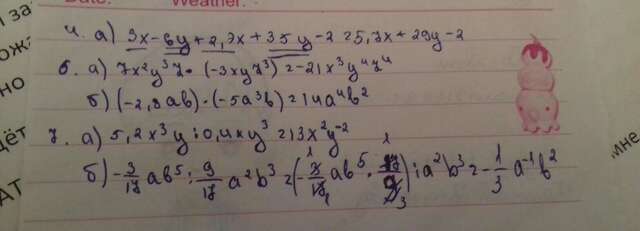 Date: Weather:
4. а) 3x-6y+2,7x+35y-2=5,7x+29y-2
6. а) 7x²y³z·(-3xyz³)=-21x³y⁴z⁴
б) (-2,8ab)·(-5a³b)=14a⁴b²
7. а) 5,2x³y:0,4xy³=13x²y⁻²
б) -3/17 ab⁵:9/17 a²b³=(-3/17 ab⁵·17/9):a²b³=-1/3 a⁻¹b²